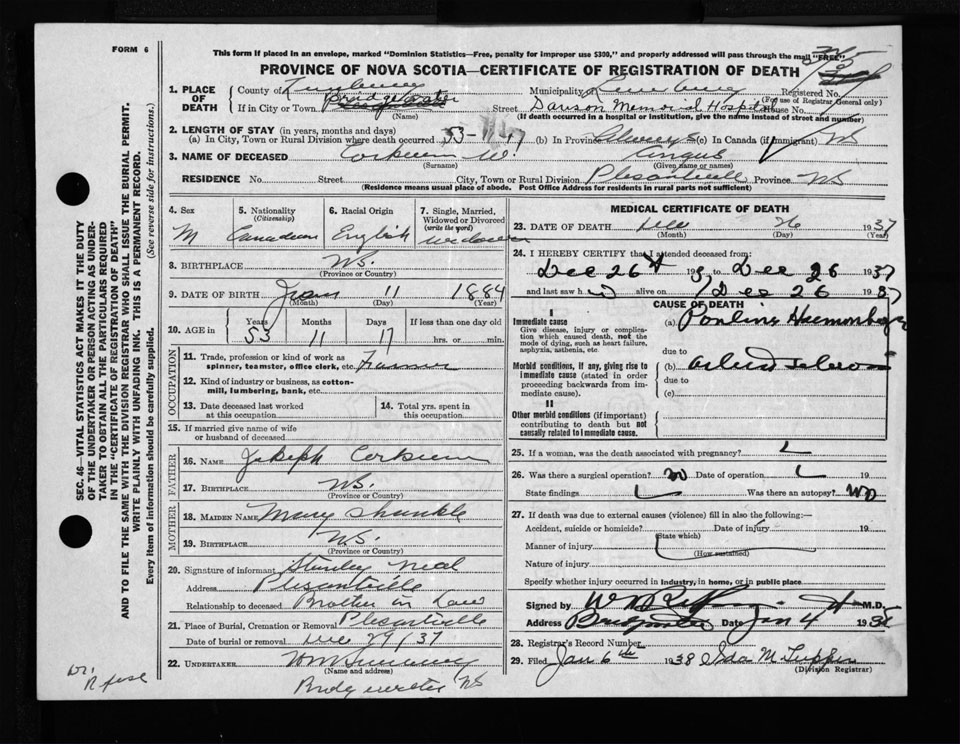 FORM 6
This form if placed in an envelope, marked "Dominion Statistics—Free, penalty for improper use $300," and properly addressed will pass through the mail "FREE"
PROVINCE OF NOVA SCOTIA—CERTIFICATE OF REGISTRATION OF DEATH
1. PLACE OF DEATH
County of Lunenburg Municipality Lunenburg Registered No.
(For use of Registrar General only)
If in City or Town Bridgewater Street Dawson Memorial Hospital House No.
(Name) (If death occurred in a hospital or institution, give the name instead of street and number)
2. LENGTH OF STAY (in years, months and days)
(a) In City, Town or Rural Division where death occurred 53-11-17 (b) In Province Always (c) In Canada (if immigrant) NS
3. NAME OF DECEASED Corkum W. Angus
(Surname) (Given name or names)
RESIDENCE No. Street City, Town or Rural Division Plesantville Province NS
(Residence means usual place of abode. Post Office Address for residents in rural parts not sufficient)
4. Sex M
5. Nationality (Citizenship) Canadian
6. Racial Origin English
7. Single, Married, Widowed or Divorced (write the word) widower
8. BIRTHPLACE NS.
(Province or Country)
9. DATE OF BIRTH Jan 11 1884
(Month) (Day) (Year)
10. AGE in Years Months Days If less than one day old
53 11 17 hrs. or min.
OCCUPATION
11. Trade, profession or kind of work as spinner, teamster, office clerk, etc. Farmer
12. Kind of industry or business, as cotton-mill, lumbering, bank, etc.
13. Date deceased last worked at this occupation
14. Total yrs. spent in this occupation
15. If married give name of wife or husband of deceased
FATHER
16. NAME Joseph Corkum
17. BIRTHPLACE NS.
(Province or Country)
MOTHER
18. MAIDEN NAME Mary Shankle
19. BIRTHPLACE NS.
(Province or Country)
20. Signature of informant Stanley Neal
Address Plesantville
Relationship to deceased Brother in Law
21. Place of Burial, Cremation or Removal Plesantville
Date of burial or removal Dec 29/37
22. UNDERTAKER
(Name and address)
Bridgewater NS
MEDICAL CERTIFICATE OF DEATH
23. DATE OF DEATH Dec 26 1937
(Month) (Day) (Year)
24. I HEREBY CERTIFY that I attended deceased from:
Dec 26 193 to Dec 26 1937
and last saw h alive on Dec 26 1937
CAUSE OF DEATH
I
Immediate cause
Give disease, injury or complication which caused death, not the mode of dying, such as heart failure, asphyxia, asthenia, etc.
(a) Pontine Haemorrhage
due to
Morbid conditions, if any, giving rise to immediate cause (stated in order proceeding backwards from immediate cause).
(b)
due to
(c)
II
Other morbid conditions (if important) contributing to death but not causally related to immediate cause.
25. If a woman, was the death associated with pregnancy?
26. Was there a surgical operation? Date of operation 19
State findings Was there an autopsy? no
27. If death was due to external causes (violence) fill in also the following:—
Accident, suicide or homicide? Date of injury 19
(State which)
Manner of injury
(How sustained)
Nature of injury
Specify whether injury occurred in industry, in home, or in public place
Signed by M.D.
Address Bridgewater Date Jan 4 1938
28. Registrar's Record Number
29. Filed Jan 6th 1938 Ida M Tupper
(Division Registrar)
SEC. 46—VITAL STATISTICS ACT MAKES IT THE DUTY
OF THE UNDERTAKER OR PERSON ACTING AS UNDERTAKER
TO OBTAIN ALL THE PARTICULARS REQUIRED
IN THE "CERTIFICATE OF REGISTRATION OF DEATH"
AND TO FILE THE SAME WITH THE DIVISION REGISTRAR WHO SHALL ISSUE THE BURIAL PERMIT.
WRITE PLAINLY WITH UNFADING INK. THIS IS A PERMANENT RECORD.
Every item of information should be carefully supplied. (See reverse side for instructions.)
Dr.